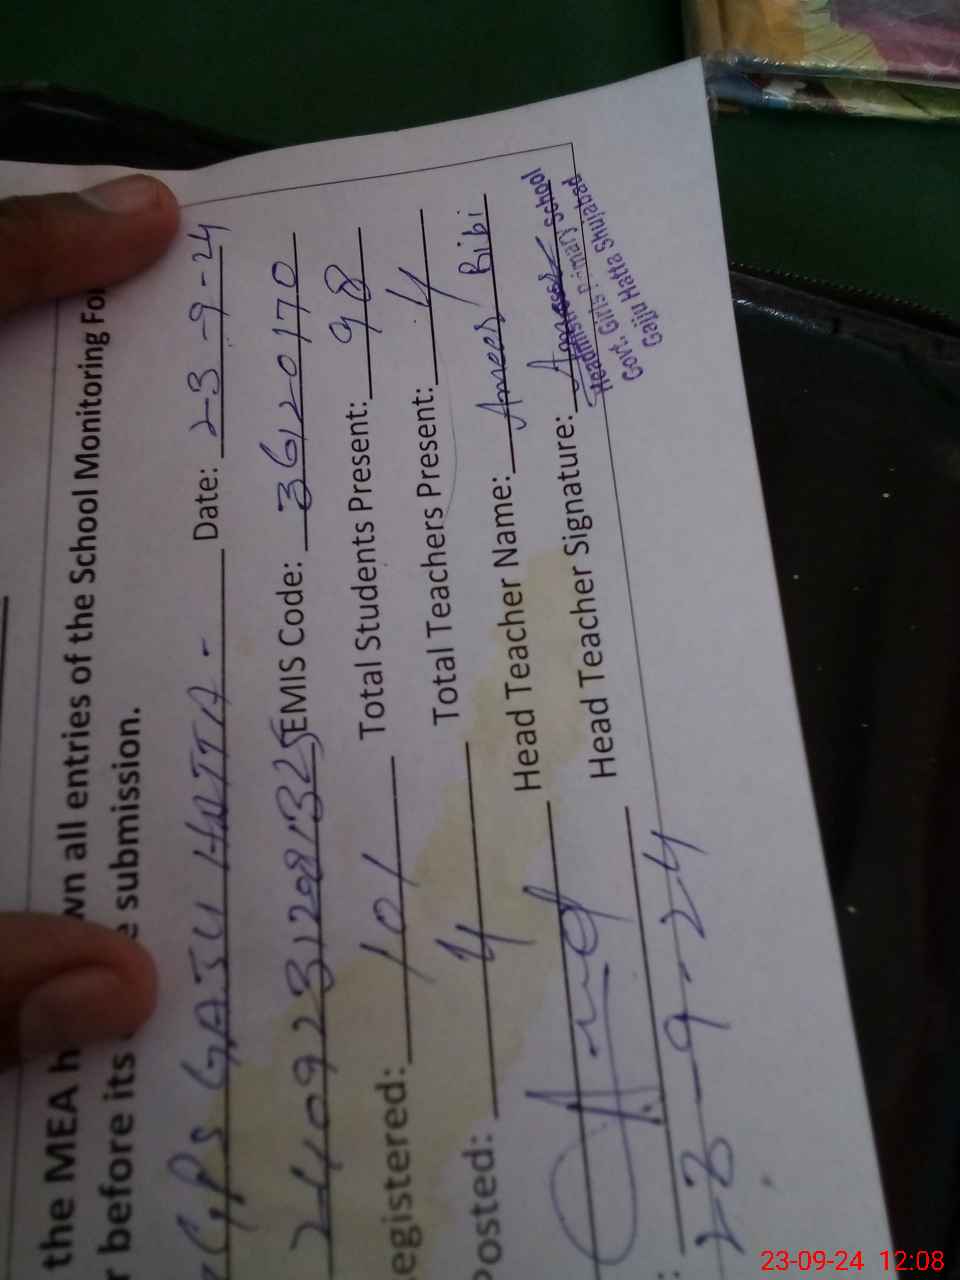 the MEA h wn all entries of the School Monitoring Fo
r before its e submission.
GPS GAJU HATTA - Date: 23-9-24
24092312081325 EMIS Code: 36120170
egistered: 101 Total Students Present: 98
Posted: 4 Total Teachers Present: 4
Head Teacher Name: Ameer Bibi
Head Teacher Signature:
23-9-24
Headmistress
Govt. Girls Primary School
Gajju Hatta Shujabad
23-09-24 12:08